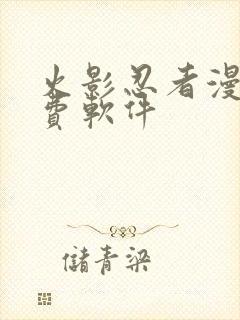 火影忍者漫
費軟件
儲青梁